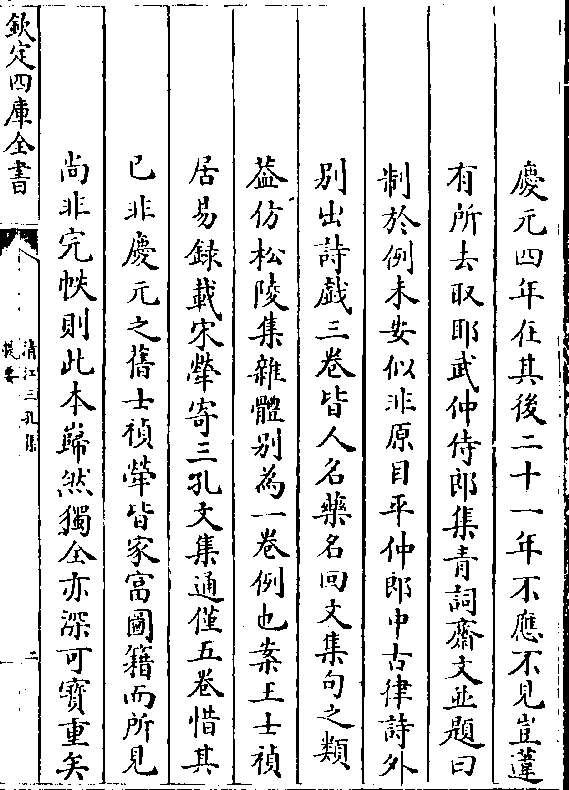 慶元四年在其後二十一年不應不見豈蘧
有所去取耶武仲侍郎集青詞齋文並題曰
制於例未安似非原目平仲郎中古律詩外
別出詩戲三卷皆人名藥名回文集句之類
葢仿松陵集雜體別為一卷例也案王士禎
居易録載宋犖寄三孔文集通僅五卷惜其
已非慶元之舊士禎犖皆家富圖籍而所見
尚非完帙則此本巋然獨全亦深可寳重矣
欽定四庫全書
清江三孔集
提要
二